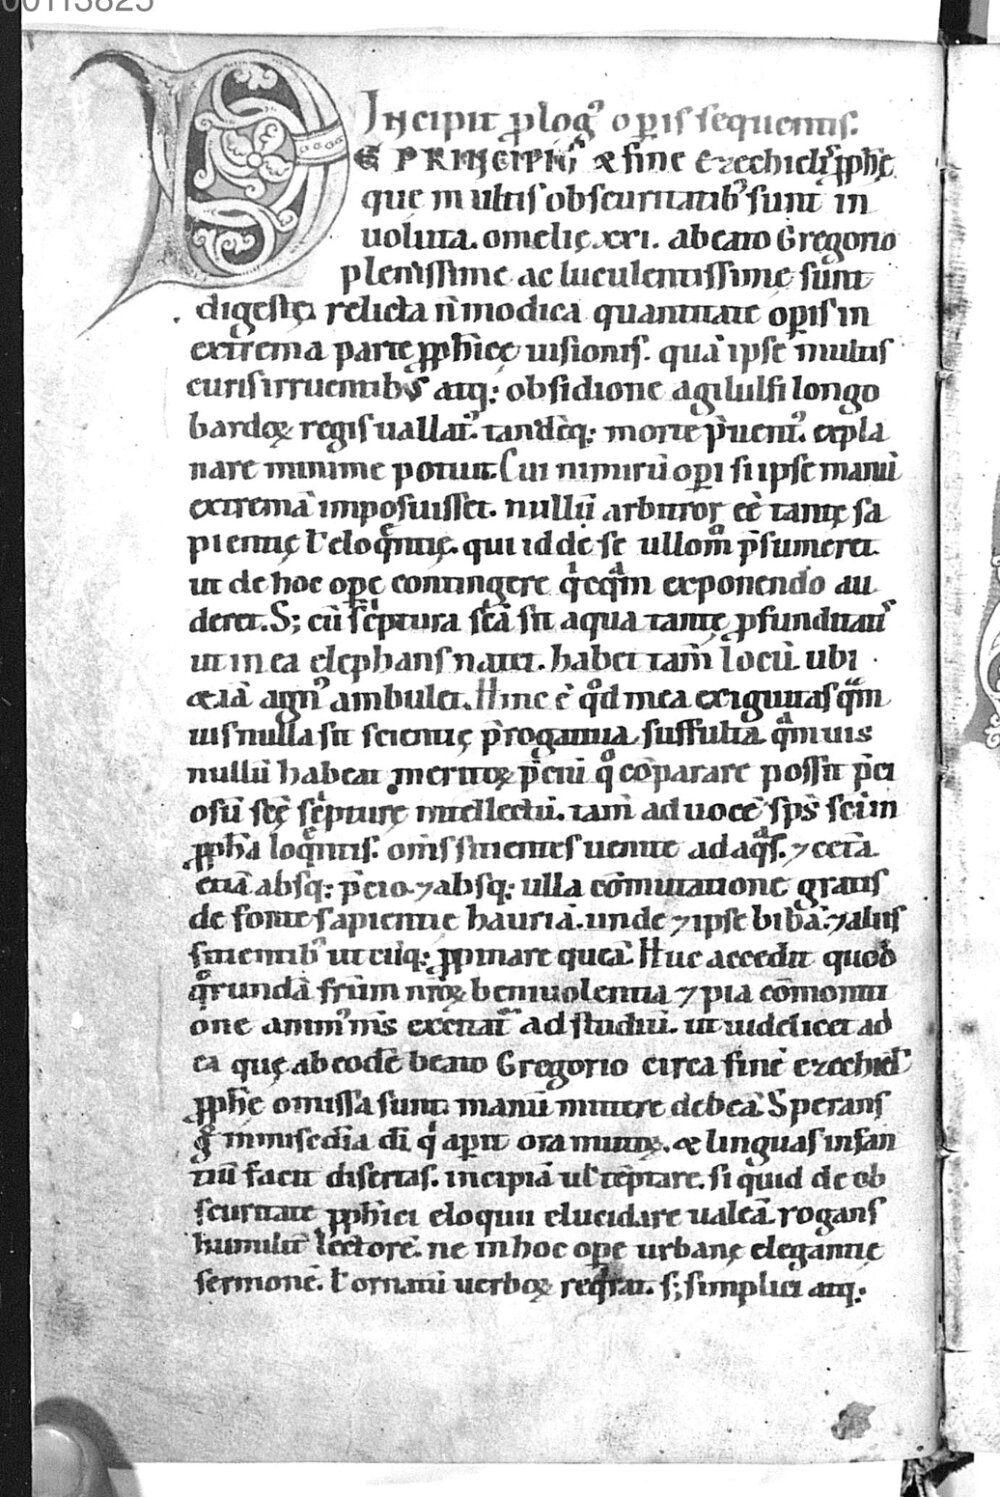 00113825
Incipit ꝓlog᾽ oꝑis sequentis.
DE PRINCIPIIˢ ⁊ fine ezechielis ꝓph̄ę
quę in ultis obscuritatib᾽ sunt in
uoluta. omelię xxi. a beato Gregorio
plenissime ac luculentissimę sunt
digestę. relicta ñ modica quantitate oꝑis in
extrema parte ꝓph̄icę uisionis. quā ipse multis
curis irruentibus atq; obsidione agilulfi longo
bardoꝝ regis uallat᾽. tandēq; morte p̄uent᾽. expla
nare minime potuit. Cui nimirū oꝑi si ipse manū
extremā imposuisset. nullū arbitror eē tantę sa
pientię ł eloqͣntię. qui id de se ullom̊ p̄sumeret.
ut de hoc oꝑe contingere qͥcqͣm exponendo au
deret. S; cū sc̄ptura sc̄a sit aqua tantę ꝓfunditatꝭ
ut in ea elephans natet. habet tam̄ locū ubi
⁊ iā agn᾽ ambulet. Hinc ē qͦd mea exiguitas qͣm
uis nulla sit scientię p̄rogatiua suffulta. qͣmuis
nullū habeat meritoꝝ p̄ciū qͦ cōparare possit p̄ci
osū scę̄ sc̄pturę intellectū. tam̄ ad uocē sp̄s sc̄i in
ꝓph̄a loqͣntis. om̄s sitientes uenite ad aqͣs. ⁊ cetā.
etiā absq; p̄cio. ⁊ absq; ulla cōmutatione gratis
de fonte sapientie hauriā. unde ⁊ ipse bibā. ⁊ aliis
sitientib᾽ utcūq; ꝓpinare queā. Huc accedit quod
qͦrundā fr̄um nr̄oꝝ beniuolentia ⁊ pia cōmoniti
one anim᾽ m̄s excitat᾽ ad studiū. ut uidelicet ad
ea quę ab eodē beato Gregorio circa finē ezechiel̄
ꝓph̄e omissa sunt. manū mittere debeā. Sperans
gͦ in misc̄dia dī qͥ aꝑit ora mutoꝝ. ⁊ linguas infan
tiū facit disertas. incipiā ul̄ tēptare. si quid de ob
scuritate ꝓph̄ici eloquii elucidare ualeā. rogans
humilit᾽ lectorē. ne in hoc oꝑe urbanę elegantię
sermonē. ł ornatū uerboꝝ reqͥrat. s; simplici atq;